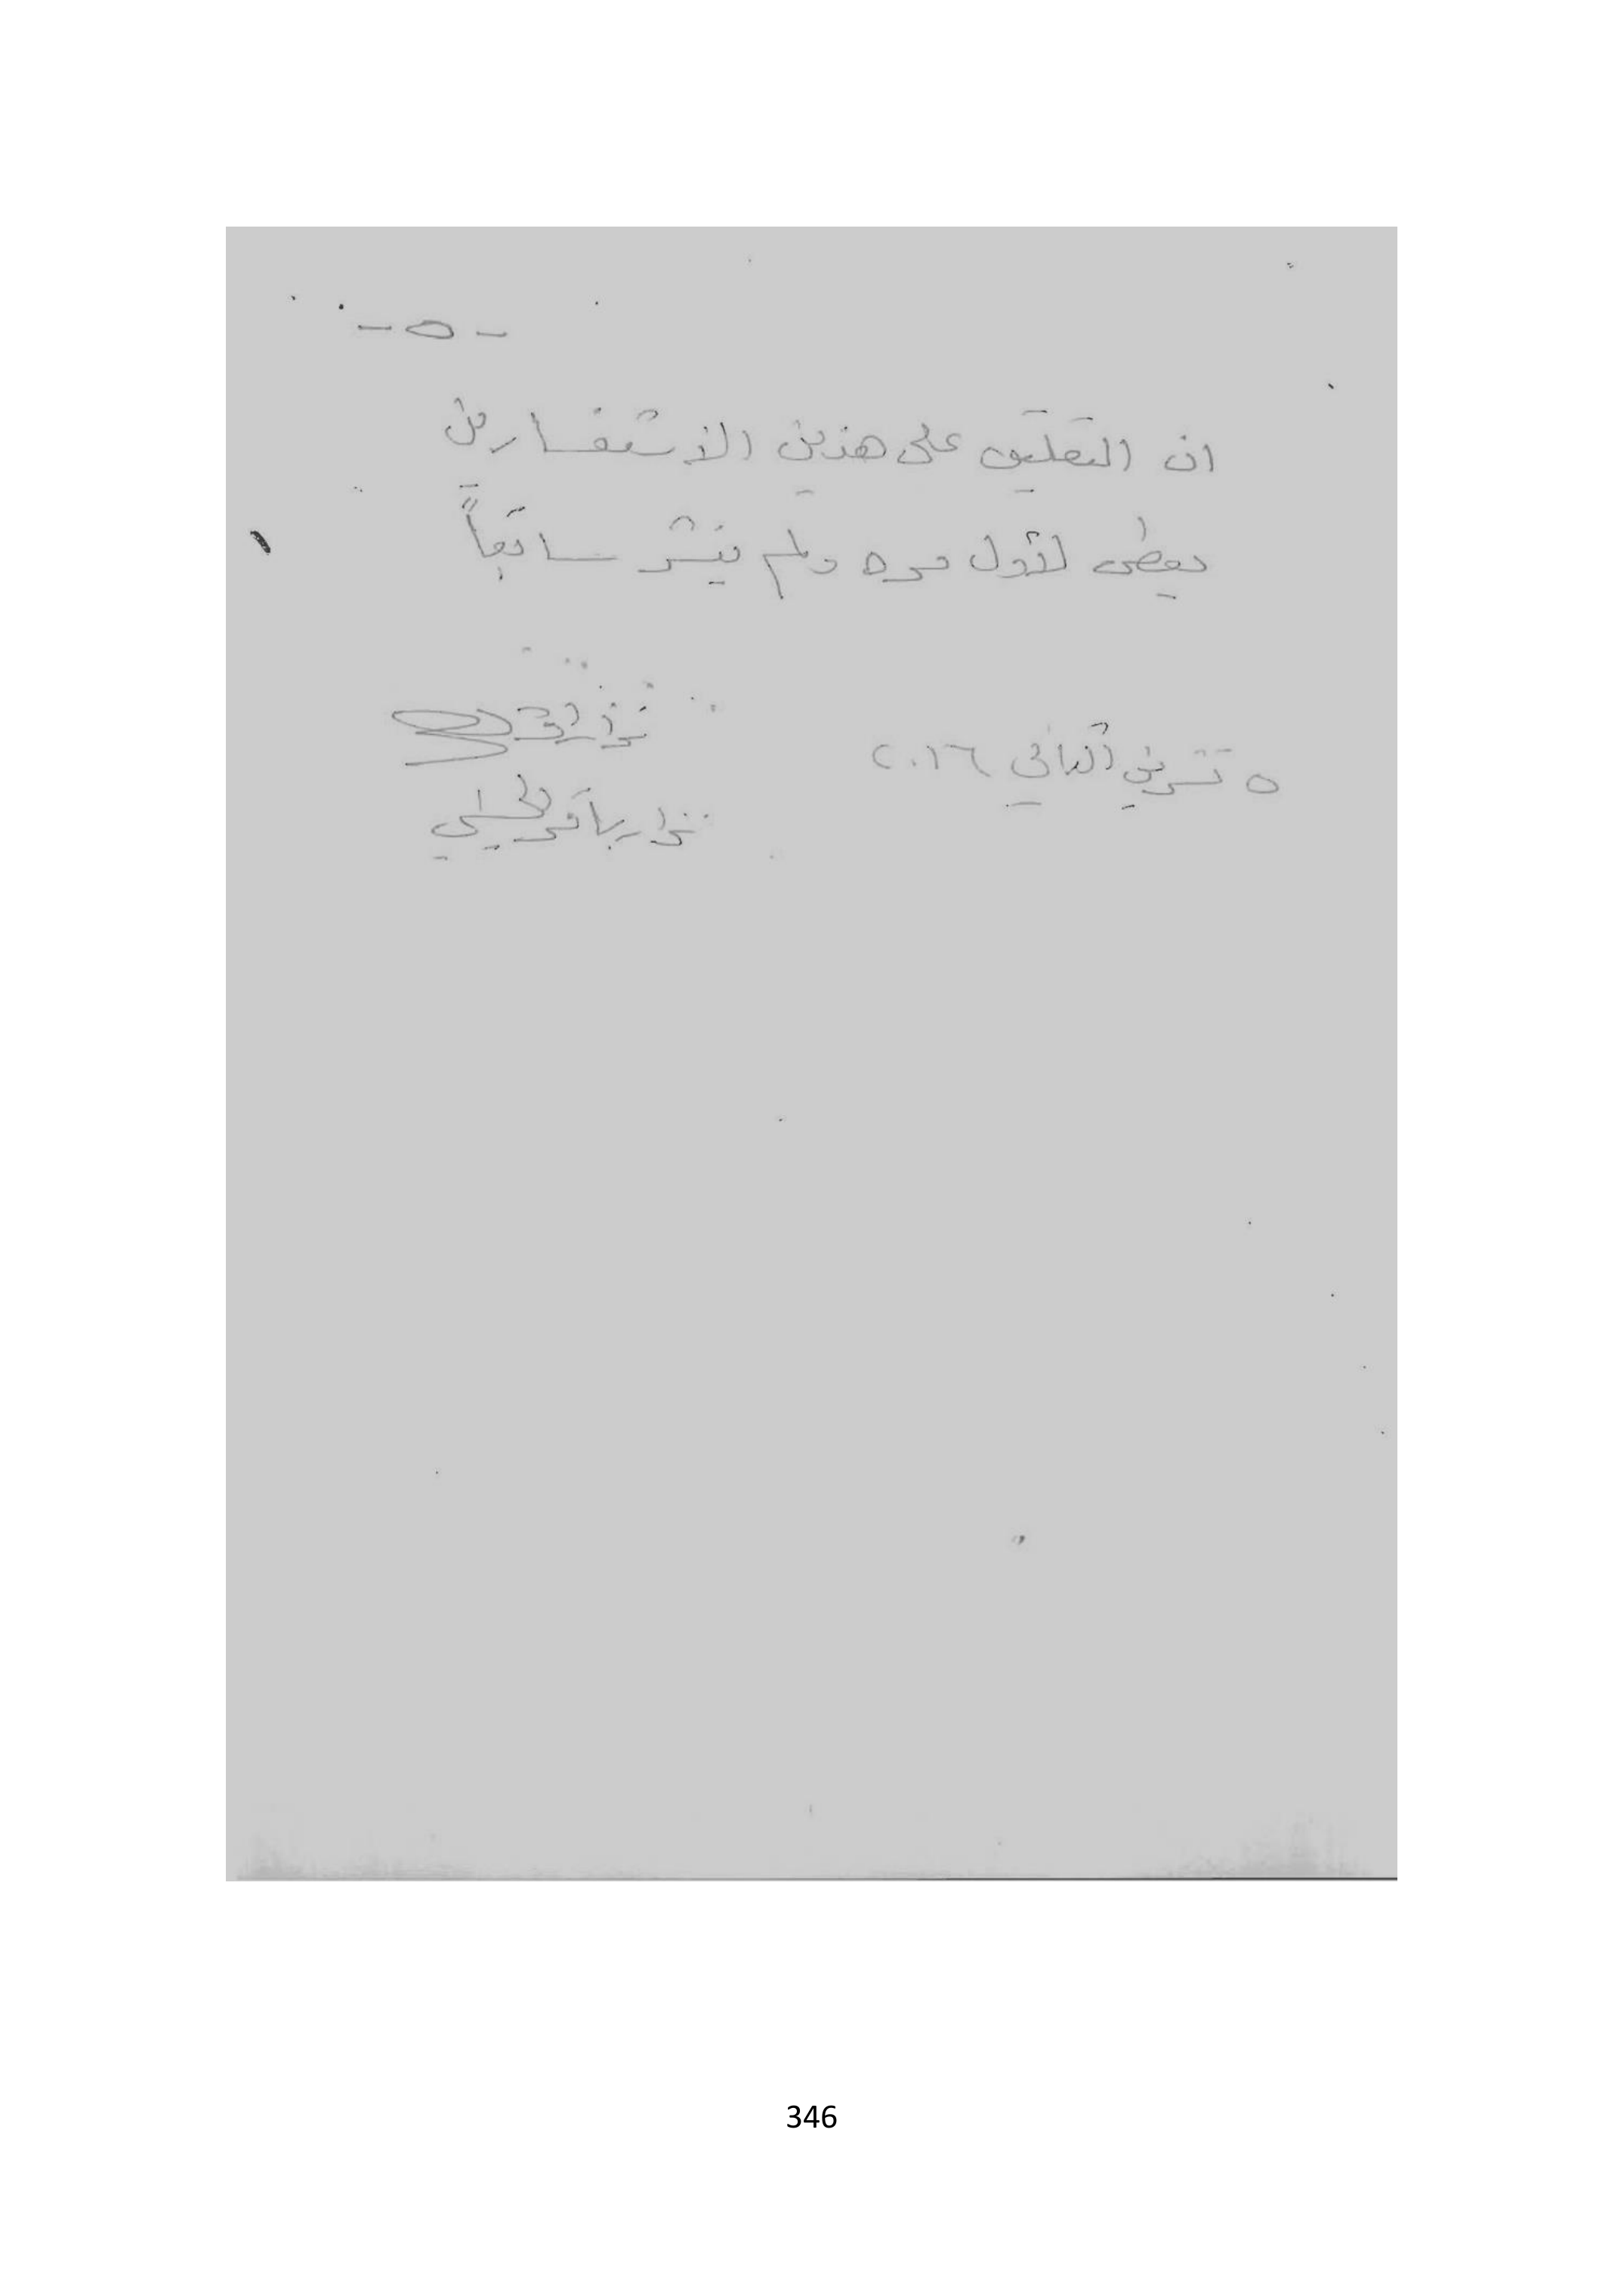 - ٥ -
ان التعليق على هذين الاستفسارين
يعطى لأول مره ولم ينشر سابقاً
٥ تشرين الثاني ٢٠١٦
نزار باقر
346